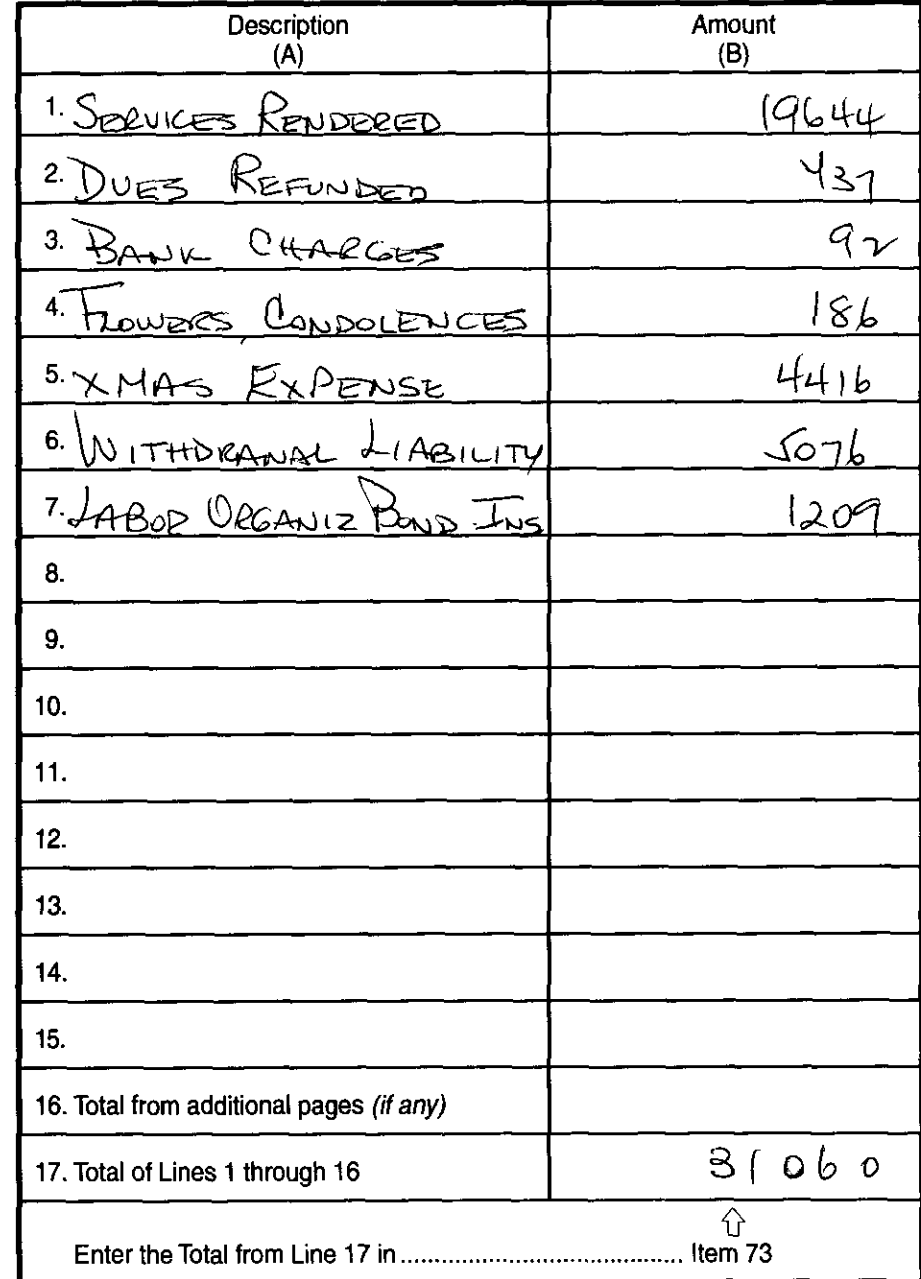 Description Amount
(A) (B)
1. SERVICES RENDERED 19644
2. DUES REFUNDED 437
3. BANK CHARGES 92
4. FLOWERS, CONDOLENCES 186
5. XMAS EXPENSE 4416
6. WITHDRAWAL LIABILITY 5076
7. LABOR ORGANIZ BOND INS 1209
8.
9.
10.
11.
12.
13.
14.
15.
16. Total from additional pages (if any)
17. Total of Lines 1 through 16 31060
Enter the Total from Line 17 in ........................................ Item 73